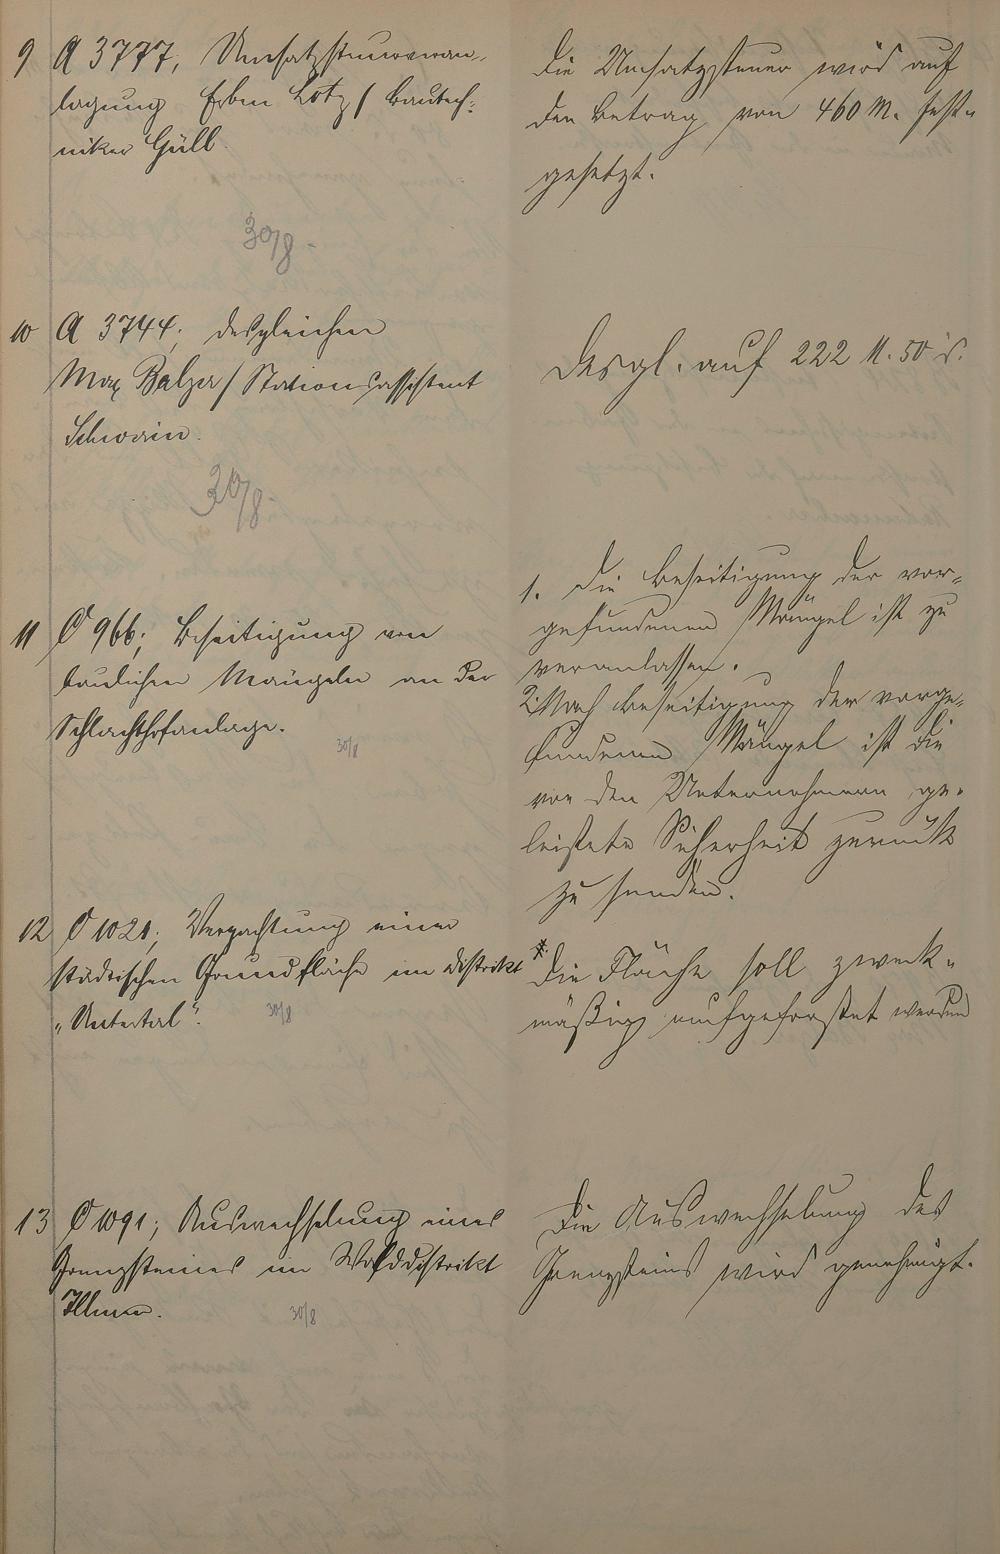 9 A 3777, Umsatzsteuerveran-
lagung Erben Lotz / Bautech-
niker Güll.
Die Umsatzsteuer wird auf
den Betrag von 460 M. fest-
gesetzt.
30/8.
10 A 3744; desgleichen
Max Balzer / Stationsassistent
Schwain.
Desgl. auf 222 M. 50 d.
30/8.
11 O 966; Beseitigung von
baulichen Mängeln an der
Schlachthofanlage.
30/8
1. Die Beseitigung der vor-
gefundenen Mängel ist zu
veranlassen.
2. Nach Beseitigung der vorge-
fundenen Mängel ist die
von den Unternehmern ge-
leistete Sicherheit zurück
zu senden.
12 O 1021; Verpachtung einer
städtischen Grundfläche im Distrikt
"Untertal".
30/8
Die Fläche soll zweck-
mäßig aufgeforstet werden
13 O 1091; Auswechselung eines
Grenzsteines im Walddistrikt
Illmer.
30/8
Die Auswechselung des
Grenzsteins wird genehmigt.